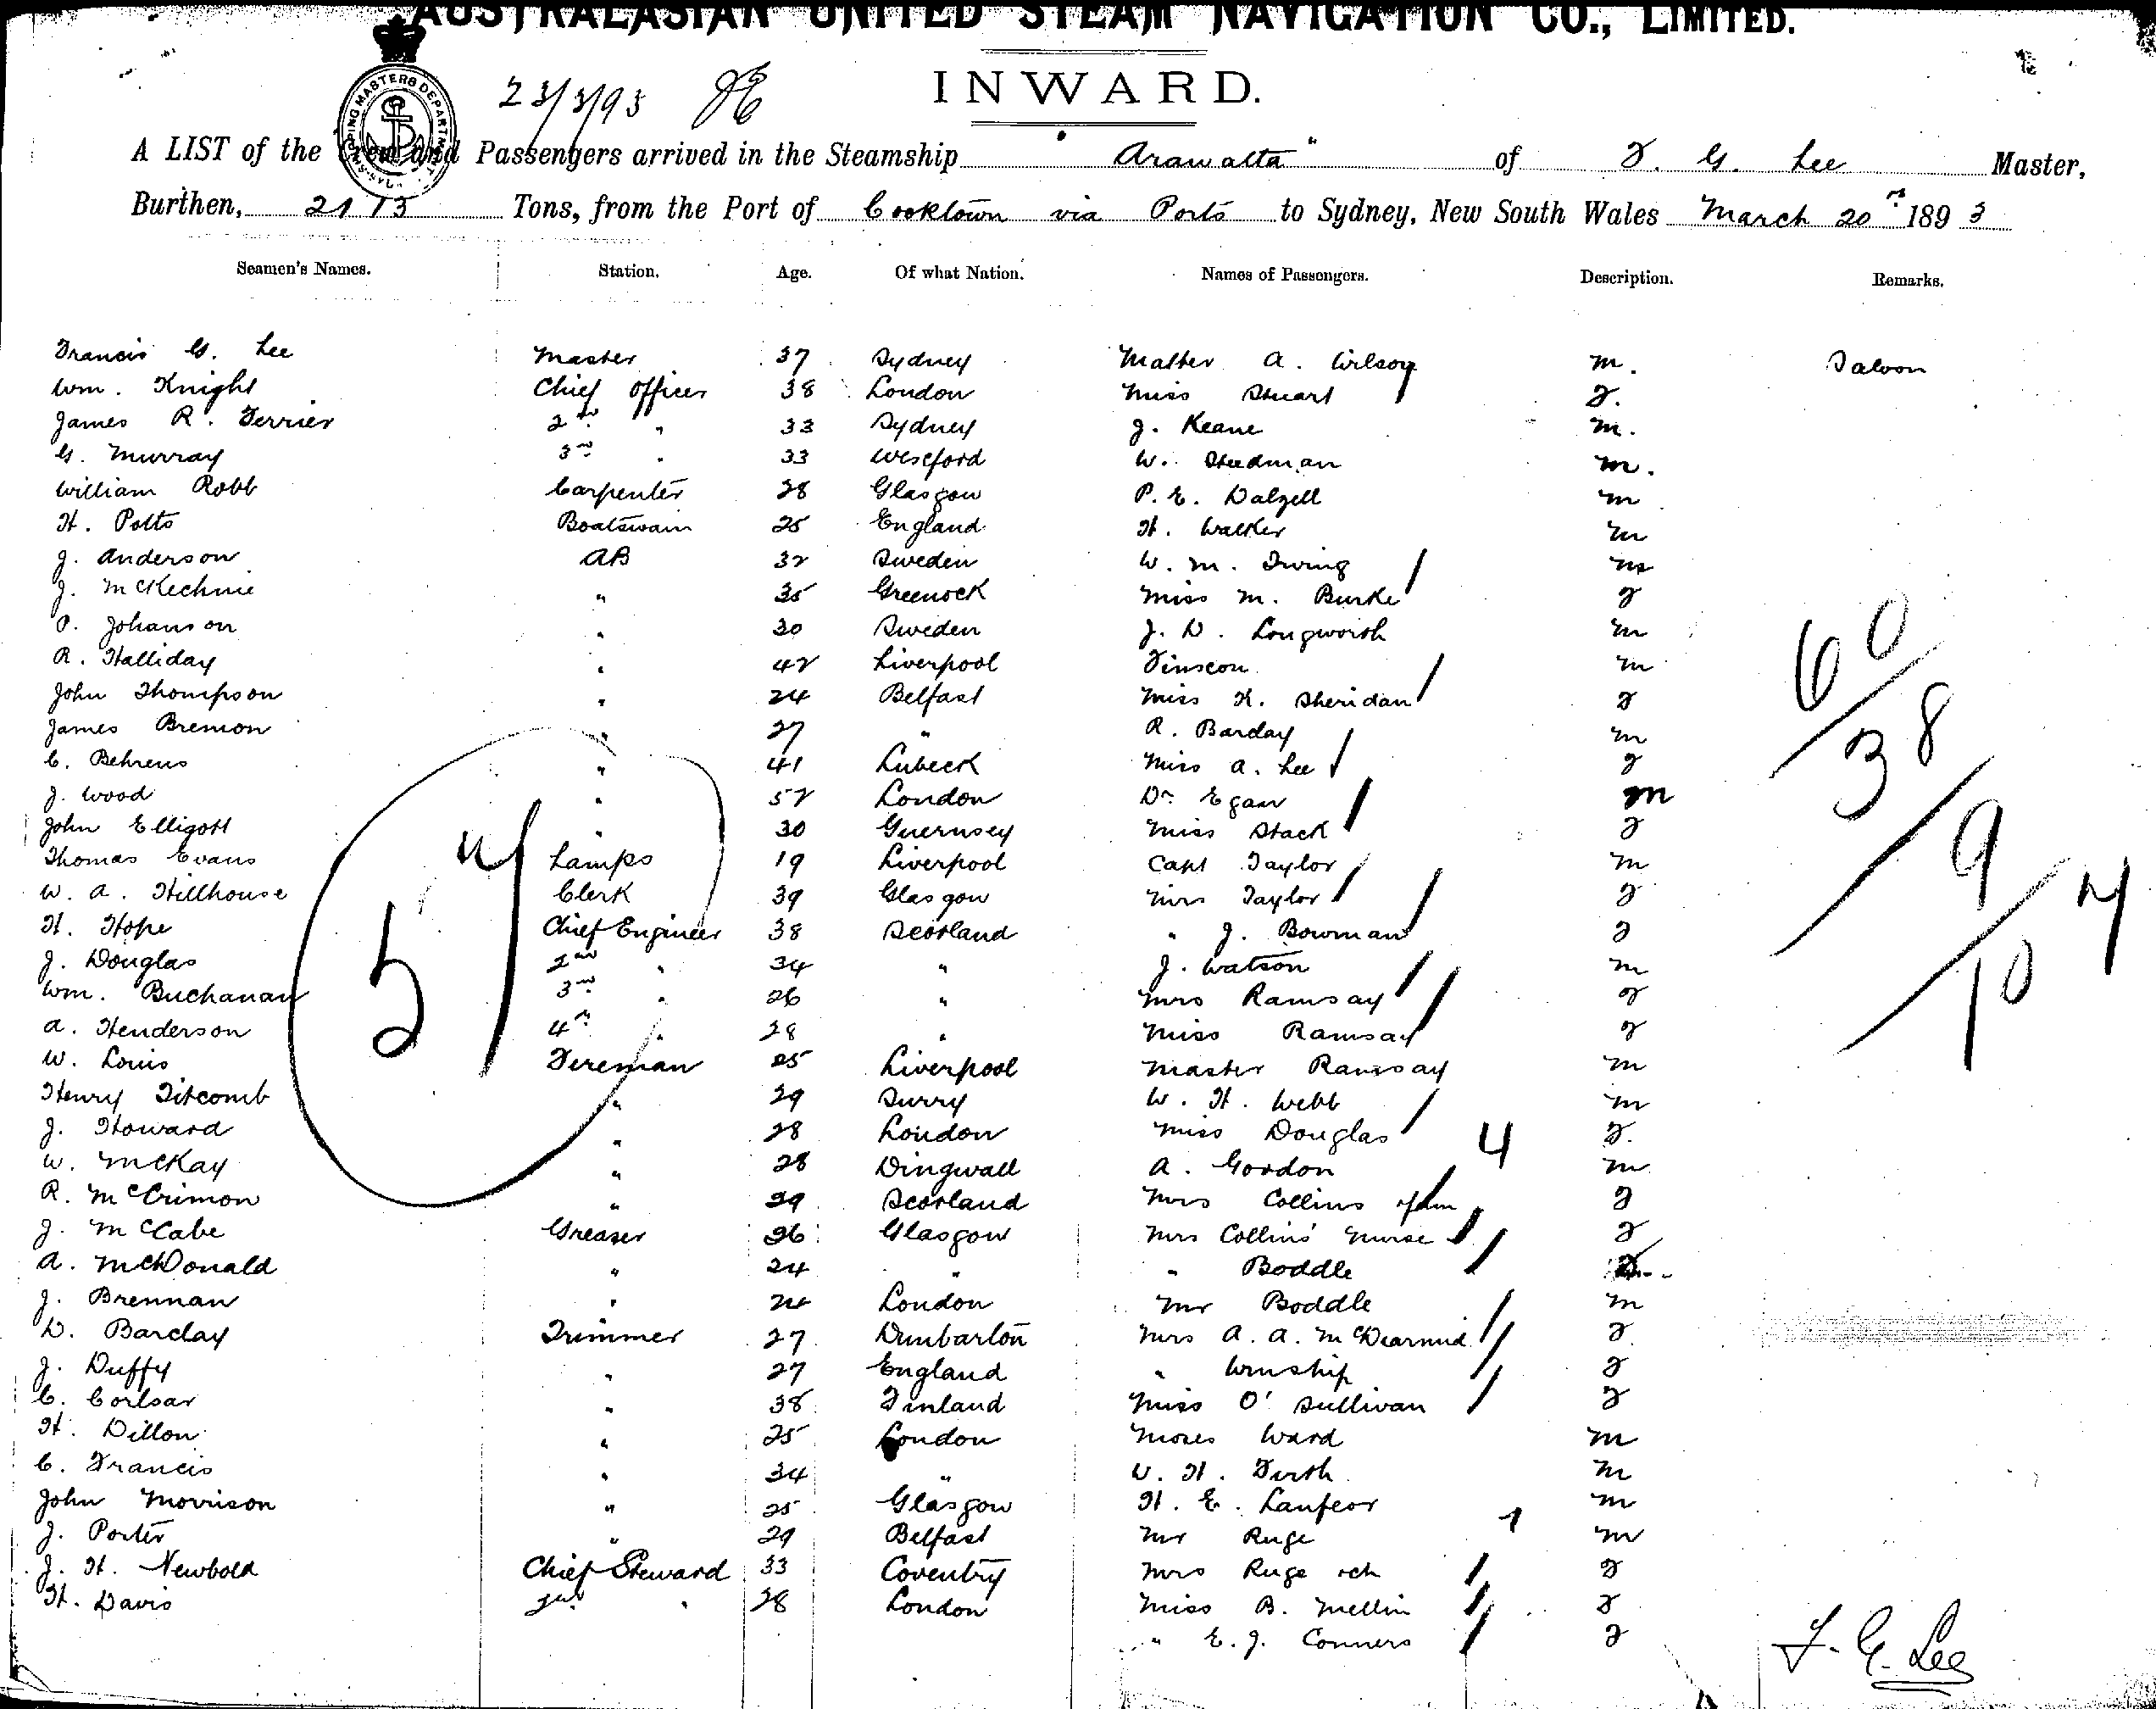 AUSTRALASIAN UNITED STEAM NAVIGATION CO., LIMITED.
INWARD.
23/3/93
SHIPPING MASTERS DEPARTMENT
A LIST of the Crew and Passengers arrived in the Steamship "Arawatta" of F. G. Lee Master,
Burthen, 2113 Tons, from the Port of Cooktown via Ports to Sydney, New South Wales March 20th 1893
Seamen's Names. Station. Age. Of what Nation. Names of Passengers. Description. Remarks.
Francis G. Lee Master 37 Sydney Walter A. Wilson m. Saloon
Wm. Knight Chief Officer 38 London Miss Stuart F.
James R. Ferrier 2nd " 33 Sydney J. Keane m.
G. Murray 3rd " 33 Wexford W. Steedman m.
William Robb Carpenter 28 Glasgow P. E. Dalzell m
H. Potts Boatswain 25 England H. Walker m
J. Anderson AB 32 Sweden W. M. Irving m
J. McKechnie " 35 Greenock Miss M. Burke F
P. Johanson " 30 Sweden J. D. Longworth m
R. Halliday " 42 Liverpool m
John Thompson " 24 Belfast Miss K. Sheridan F
James Bremon " 27 " R. Barclay m
C. Behrens " 41 Lubeck Miss A. Lee F
J. Wood " 52 London Dr. Egan m
John Elligott " 30 Guernsey Miss Stack F
Thomas Evans Lamps 19 Liverpool Capt Taylor m
W. A. Hillhouse Clerk 39 Glasgow Mrs Taylor F
H. Hope Chief Engineer 38 Scotland " J. Bowman F
J. Douglas 2nd " 34 " J. Watson m
Wm. Buchanan 3rd " 26 " Mrs Ramsay F
A. Henderson 4th " 28 " Miss Ramsay F
W. Louis Fireman 25 Liverpool Master Ramsay m
Henry Titcomb " 29 Surry W. H. Webb m
J. Howard " 28 London Miss Douglas F.
W. McKay " 28 Dingwall A. Gordon m
R. McCrimon " 29 Scotland Mrs Collins F
J. McCabe Greaser 26 Glasgow Mrs Collins' nurse F
A. McDonald " 24 " " Boddle F
J. Brennan " 24 London Mr Boddle m
D. Barclay Trimmer 27 Dunbarton Mrs A. A. McDearmid F
J. Duffy " 27 England " Winship F
C. " 38 Finland Miss O'Sullivan F
H. Dillon " 25 London Moses Ward m
C. Francis " 34 " W. H. Firth m
John Morrison " 25 Glasgow H. E. m
J. Porter " 29 Belfast Mr Ruge m
J. H. Newbold Chief Steward 33 Coventry Mrs Ruge F
H. Davis 2nd " 28 London Miss B. Mellin F
" E. J. Conners F
57
60/38/9/10
4
1
F. G. Lee